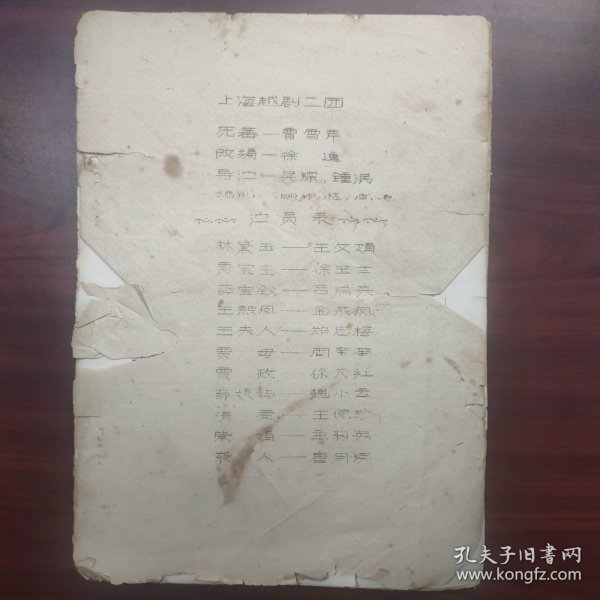 上海越剧二团
原著—曹雪芹
改编—徐進
导演—吴琛、鍾泯
编曲—顾振遐、高鸣
演员表
林黛玉——王文娟
贾宝玉——徐玉兰
薛宝钗——吕瑞英
王熙凤——金采凤
王夫人——郑忠梅
贾母——周宝奎
贾政——徐天红
薛姨妈——魏小云
王佩珍
紫娟——孟莉英
袭人——唐月英
孔夫子旧书网
www.kongfz.com